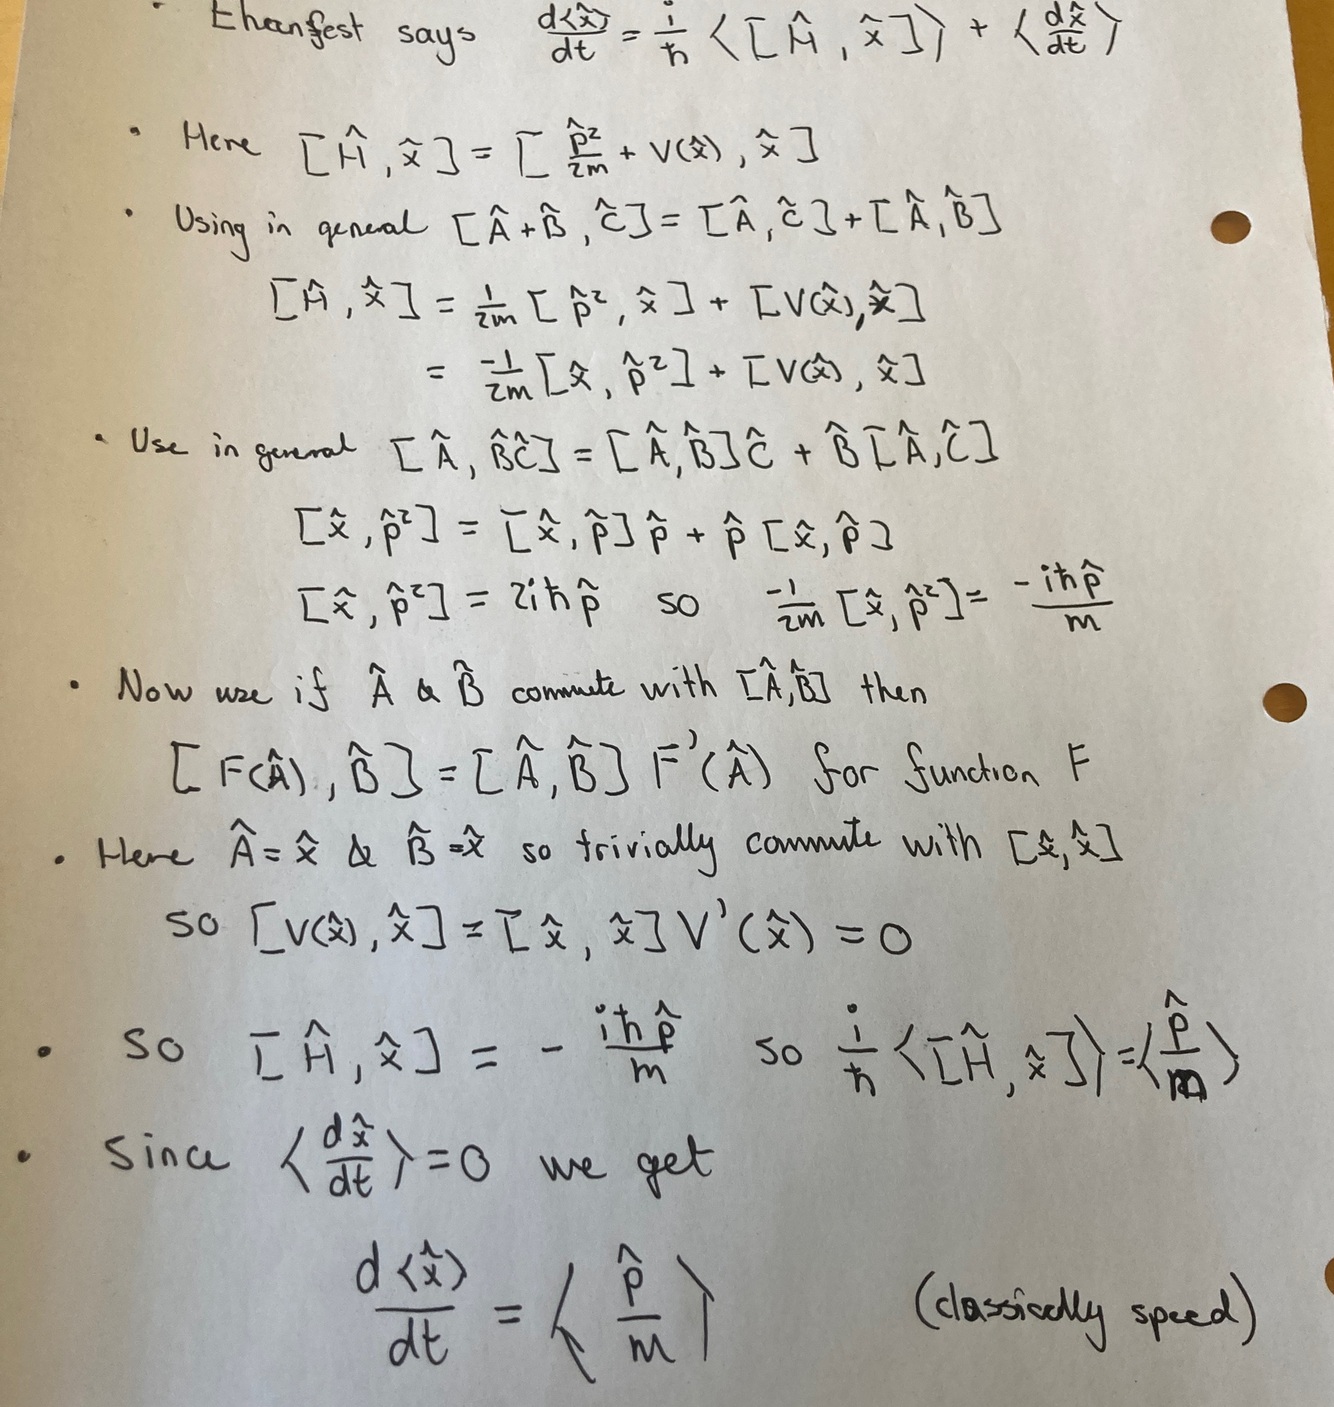 • Ehrenfest says d⟨x̂⟩/dt = i/ħ ⟨[Ĥ, x̂]⟩ + ⟨dx̂/dt⟩
• Here [Ĥ, x̂] = [p̂²/2m + V(x̂), x̂]
• Using in general [Â+B̂, Ĉ] = [Â, Ĉ] + [Â, B̂]
[Ĥ, x̂] = 1/2m [p̂², x̂] + [V(x̂), x̂]
= -1/2m [x̂, p̂²] + [V(x̂), x̂]
• Use in general [Â, B̂Ĉ] = [Â, B̂]Ĉ + B̂[Â, Ĉ]
[x̂, p̂²] = [x̂, p̂]p̂ + p̂[x̂, p̂]
[x̂, p̂²] = 2iħp̂ so -1/2m [x̂, p̂²] = -iħp̂/m
• Now use if Â & B̂ commute with [Â, B̂] then
[F(Â), B̂] = [Â, B̂] F'(Â) for function F
• Here Â = x̂ & B̂ = x̂ so trivially commute with [x̂, x̂]
so [V(x̂), x̂] = [x̂, x̂] V'(x̂) = 0
• so [Ĥ, x̂] = - iħp̂/m so i/ħ ⟨[Ĥ, x̂]⟩ = ⟨p̂/m⟩
• Since ⟨dx̂/dt⟩ = 0 we get
d⟨x̂⟩/dt = ⟨p̂/m⟩ (classically speed)